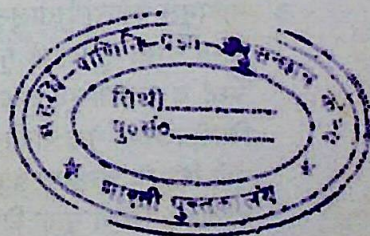 महर्षि-पाणिनि-प्रज्ञा-
तिथी
पु०सं०
★ भारती पुस्तकालय ★